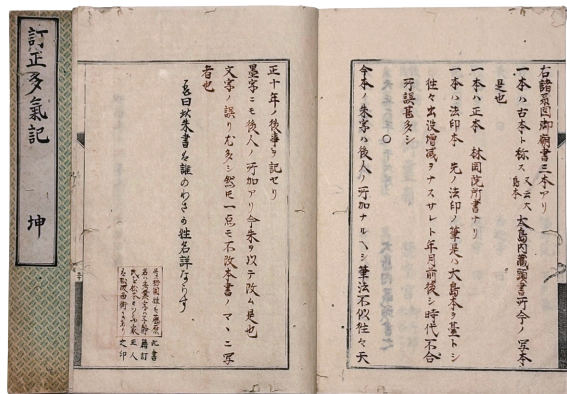 訂正多氣記 坤
右諸系図御廟書三本アリ
一本ハ古本ト称ス 又云大島本 大島内蔵頭書所今ノ写本
是也
一本ハ正本 林岡院所書ナリ
一本ハ法印本 先ノ法印ノ筆是ハ大島本ヲ基トシ
往々出没増減ヲナスサレト年月前後シ時代不合
所誤甚多シ
〇
今本ノ朱字ハ後人ノ所加ナルヘシ筆法不似往々天
正十年ノ後事ヲ記セリ
墨字ニモ後人ノ所加アリ今朱ヲ以テ改ム是也
文字ノ誤リ尤多シ然モ一点モ不改本書ノマヽニ写
者也
曰以朱書を誰のわさか姓名詳ならす